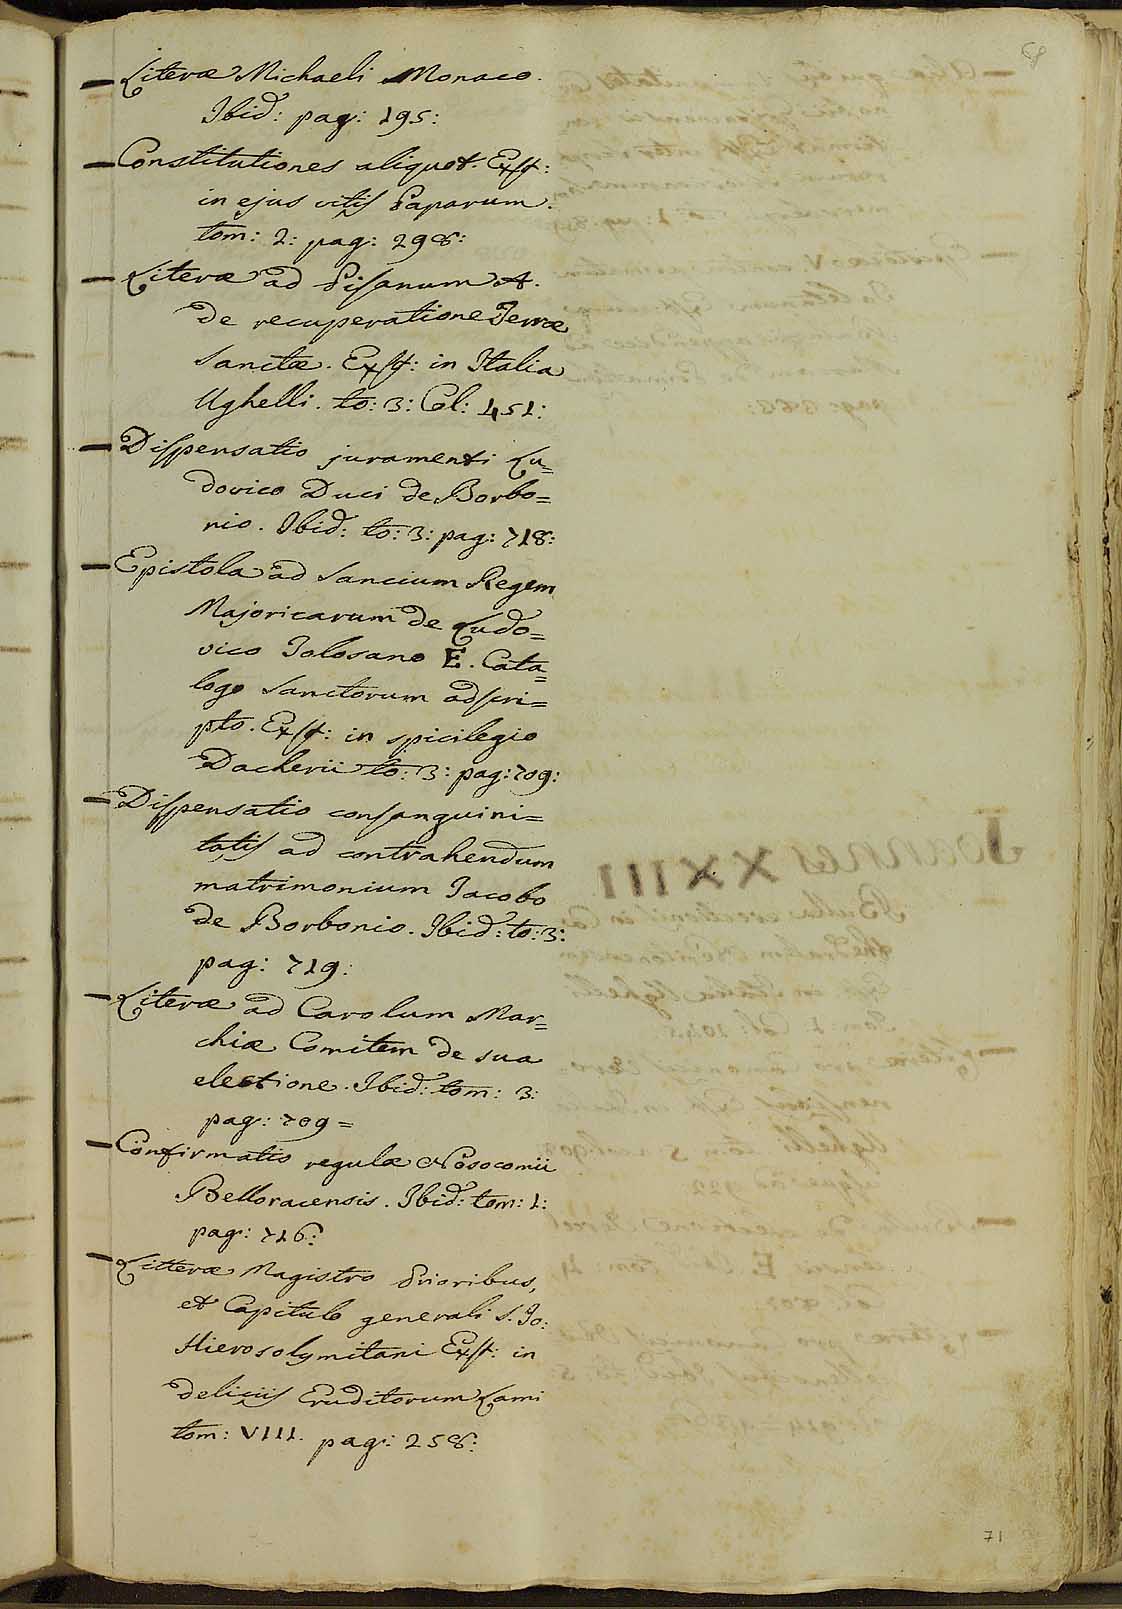 68
— Literæ Michaeli Monaco.
Ibid: pag: 195:
— Constitutiones aliquot. Exst:
in ejus vitis Paparum.
tom: 2: pag: 298:
— Literæ ad Pisanum A.
de recuperatione Terræ
Sanctæ. Exst: in Italia
Ughelli. to: 3: Col: 451:
— Dispensatio juramenti Lu=
dovico Duci de Borbo=
nio. Ibid: to: 3: pag: 718:
— Epistola ad Sancium Regem
Majoricarum de Ludo=
vico Tolosano E. Cata=
logo Sanctorum adscri=
pto. Exst: in spicilegio
Dacherii to: 3: pag: 709:
— Dispensatio consanguini=
tatis ad contrahendum
matrimonium Jacobo
de Borbonio. Ibid: to: 3:
pag: 719:
— Literæ ad Carolum Mar=
chiæ Comitem de sua
electione. Ibid: tom: 3:
pag: 709=
— Confirmatio regulæ Nosocomii
Belloracensis. Ibid: tom: 1:
pag: 716:
— Litteræ Magistro Prioribus,
et Capitulo generali S. Jo:
Hierosolymitani Exst: in
deliciis Eruditorum Lami
tom: VIII. pag: 258:
71